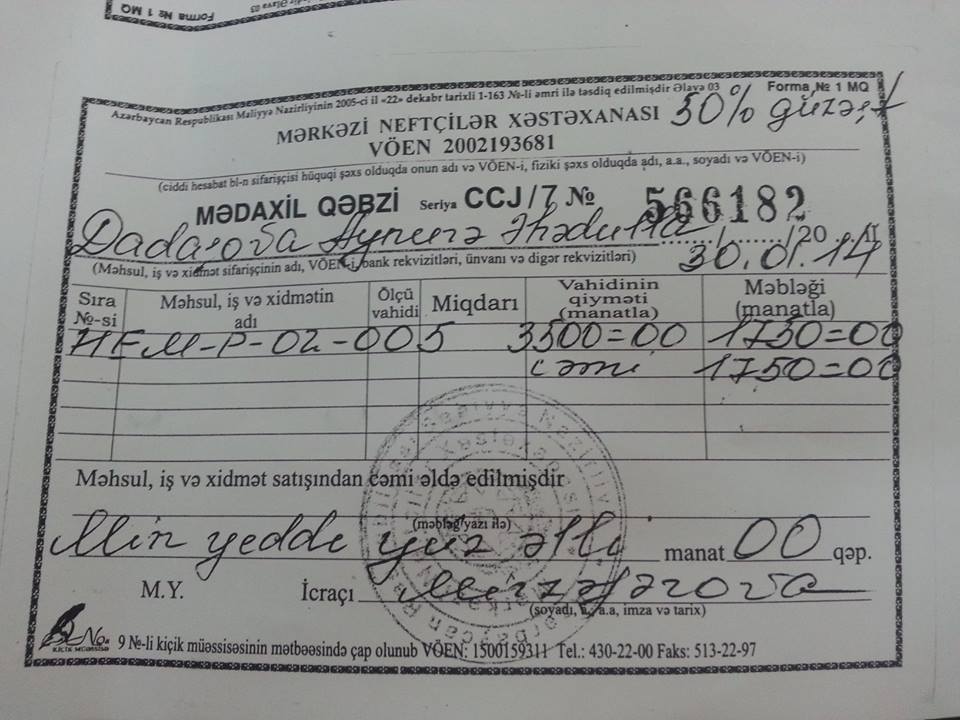 Forma № 1 MQ
Azərbaycan Respublikası Maliyyə Nazirliyinin 2005-ci il «22» dekabr tarixli 1-163 №-li əmri ilə təsdiq edilmişdir Əlavə 03 Forma № 1 MQ
MƏRKƏZİ NEFTÇİLƏR XƏSTƏXANASI 50% güzəşt
VÖEN 2002193681
(ciddi hesabat bl-n sifarişçisi hüquqi şəxs olduqda onun adı və VÖEN-i, fiziki şəxs olduqda adı, a.a., soyadı və VÖEN-i)
MƏDAXİL QƏBZİ Seriya CCJ/7 № 566182
Dadaşova Aynurə Əhədulla 30.01.14
(Məhsul, iş və xidmət sifarişçinin adı, VÖEN-i, bank rekvizitləri, ünvanı və digər rekvizitləri)
Sıra №-si Məhsul, iş və xidmətin adı Ölçü vahidi Miqdarı Vahidinin qiyməti (manatla) Məbləği (manatla)
HFM-P-02-005 3500=00 1750=00
cəmi 1750=00
Məhsul, iş və xidmət satışından cəmi əldə edilmişdir
(məbləğ yazı ilə)
Min yeddi yüz əlli manat 00 qəp.
M.Y. İcraçı
(soyadı, a., a.a, imza və tarix)
KİÇİK MÜƏSSİSƏ 9 №-li kiçik müəssisəsinin mətbəəsində çap olunub VÖEN: 1500159311 Tel.: 430-22-00 Faks: 513-22-97